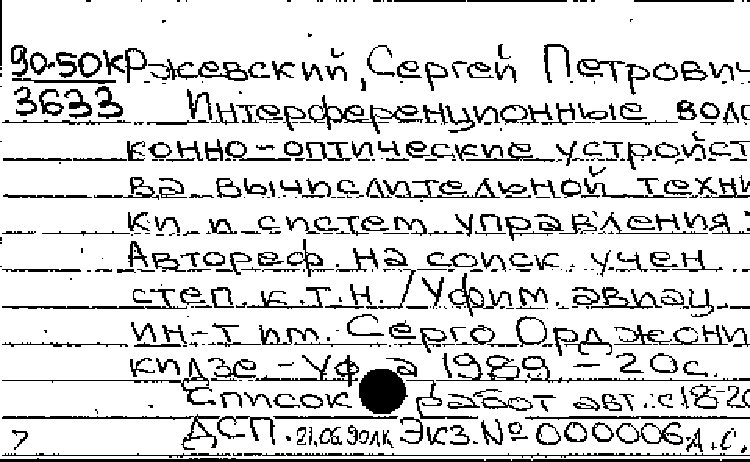 90-50к Ржевский, Сергей Петрович
3633 Интерференционные воло
конно-оптические устройст
ва вычислительной техни
ки и систем управления:
Автореф. на соиск. учен
степ. к.т.н. / Уфим. авиац
ин-т им. Серго Орджони
кидзе - Уфа 1989 - 20с.
Список работ авт.: с 18-20
ДСП. 21.06.90лк Экз. № 000006 д.с.